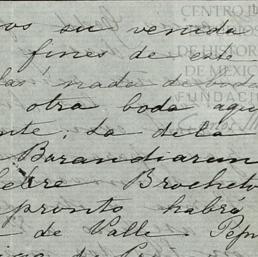 os su venida
fines de este
nada de
otra boda aqui
nte; la de la
Barandiaran
lebre Brocheto
pronto habrá
de Valle. Pep
CENTRO
DE HISTOR
DE MEXIC
FUNDA